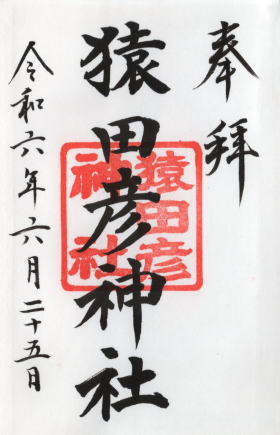 奉拝
猿田彦神社
猿田彦
神社
令和六年六月二十五日